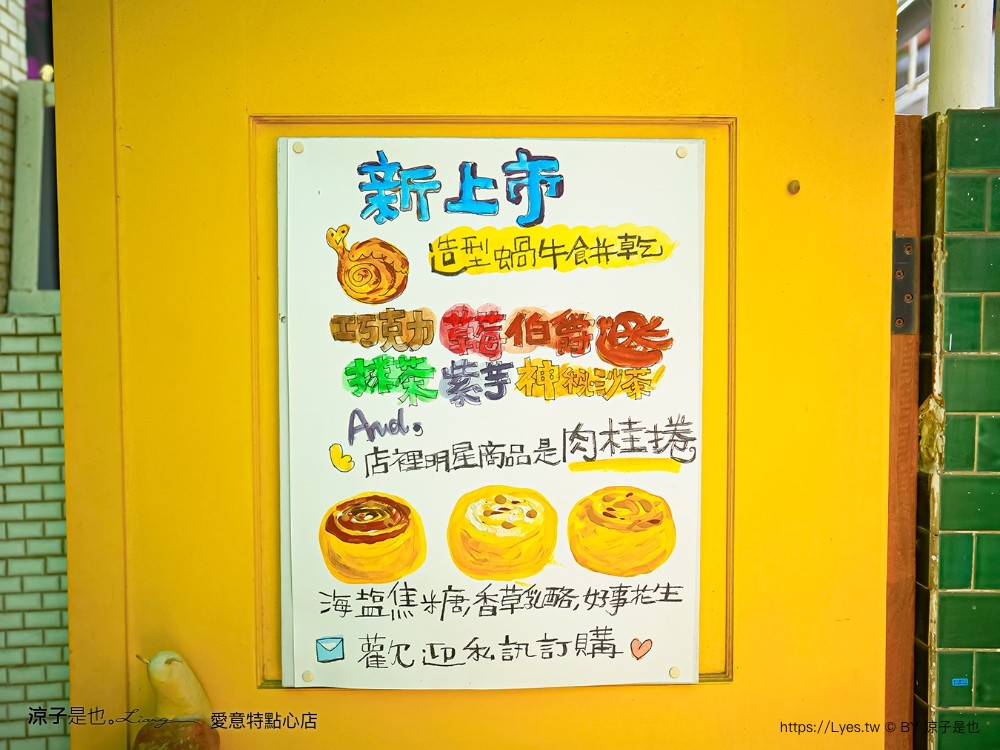 新上市
造型蝸牛餅乾
巧克力 草莓 伯爵
抹茶 紫芋 神秘沙茶
And,
店裡明星商品是肉桂捲
海鹽焦糖,香草乳酪,好事花生
歡迎私訊訂購
涼子是也。Liang 愛意特點心店
https://Lyes.tw © BY 涼子是也